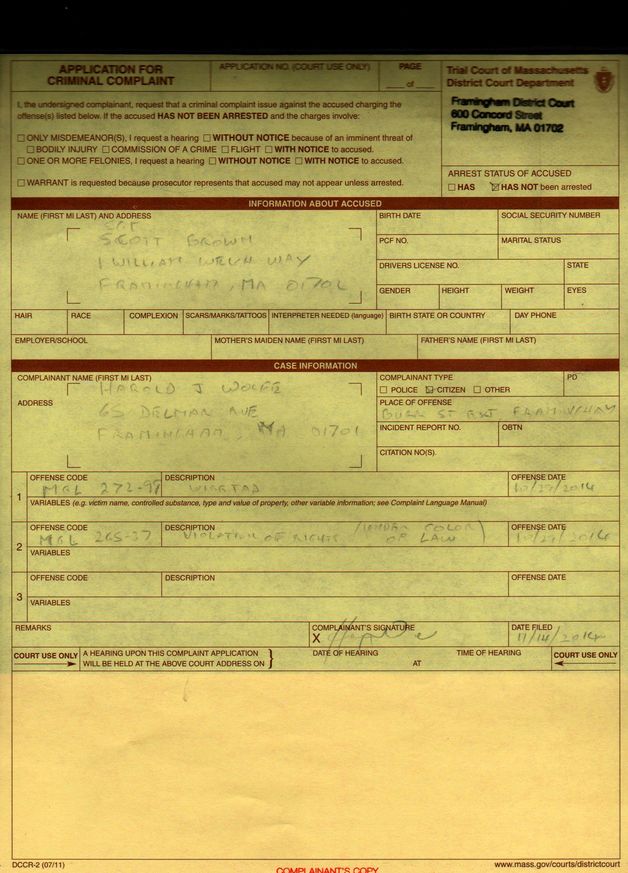 APPLICATION FOR
CRIMINAL COMPLAINT
APPLICATION NO. (COURT USE ONLY)
PAGE
____ of ____
Trial Court of Massachusetts
District Court Department
I, the undersigned complainant, request that a criminal complaint issue against the accused charging the
offense(s) listed below. If the accused HAS NOT BEEN ARRESTED and the charges involve:
☐ ONLY MISDEMEANOR(S), I request a hearing ☐ WITHOUT NOTICE because of an imminent threat of
☐ BODILY INJURY ☐ COMMISSION OF A CRIME ☐ FLIGHT ☐ WITH NOTICE to accused.
☐ ONE OR MORE FELONIES, I request a hearing ☐ WITHOUT NOTICE ☐ WITH NOTICE to accused.
☐ WARRANT is requested because prosecutor represents that accused may not appear unless arrested.
Framingham District Court
600 Concord Street
Framingham, MA 01702
ARREST STATUS OF ACCUSED
☐ HAS ☒ HAS NOT been arrested
INFORMATION ABOUT ACCUSED
NAME (FIRST MI LAST) AND ADDRESS
SGT
SCOTT BROWN
1 WILLIAM WELCH WAY
FRAMINGHAM, MA 01702
BIRTH DATE
SOCIAL SECURITY NUMBER
PCF NO.
MARITAL STATUS
DRIVERS LICENSE NO.
STATE
GENDER
HEIGHT
WEIGHT
EYES
HAIR
RACE
COMPLEXION
SCARS/MARKS/TATTOOS
INTERPRETER NEEDED (language)
BIRTH STATE OR COUNTRY
DAY PHONE
EMPLOYER/SCHOOL
MOTHER'S MAIDEN NAME (FIRST MI LAST)
FATHER'S NAME (FIRST MI LAST)
CASE INFORMATION
COMPLAINANT NAME (FIRST MI LAST)
HAROLD J WOLFE
ADDRESS
65 DELMAR AVE
FRAMINGHAM, MA 01701
COMPLAINANT TYPE
☐ POLICE ☒ CITIZEN ☐ OTHER
PD
PLACE OF OFFENSE
ST FRAMINGHAM
INCIDENT REPORT NO.
OBTN
CITATION NO(S).
1
OFFENSE CODE
MGL 272-99
DESCRIPTION
WIRETAP
OFFENSE DATE
10/29/2014
VARIABLES (e.g. victim name, controlled substance, type and value of property, other variable information; see Complaint Language Manual)
2
OFFENSE CODE
MGL 265-37
DESCRIPTION
VIOLATION OF RIGHTS (UNDER COLOR
OF LAW)
OFFENSE DATE
10/29/2014
VARIABLES
3
OFFENSE CODE
DESCRIPTION
OFFENSE DATE
VARIABLES
REMARKS
COMPLAINANT'S SIGNATURE
X
DATE FILED
11/14/2014
COURT USE ONLY
A HEARING UPON THIS COMPLAINT APPLICATION
WILL BE HELD AT THE ABOVE COURT ADDRESS ON
DATE OF HEARING
AT
TIME OF HEARING
COURT USE ONLY
DCCR-2 (07/11)
COMPLAINANT'S COPY
www.mass.gov/courts/districtcourt